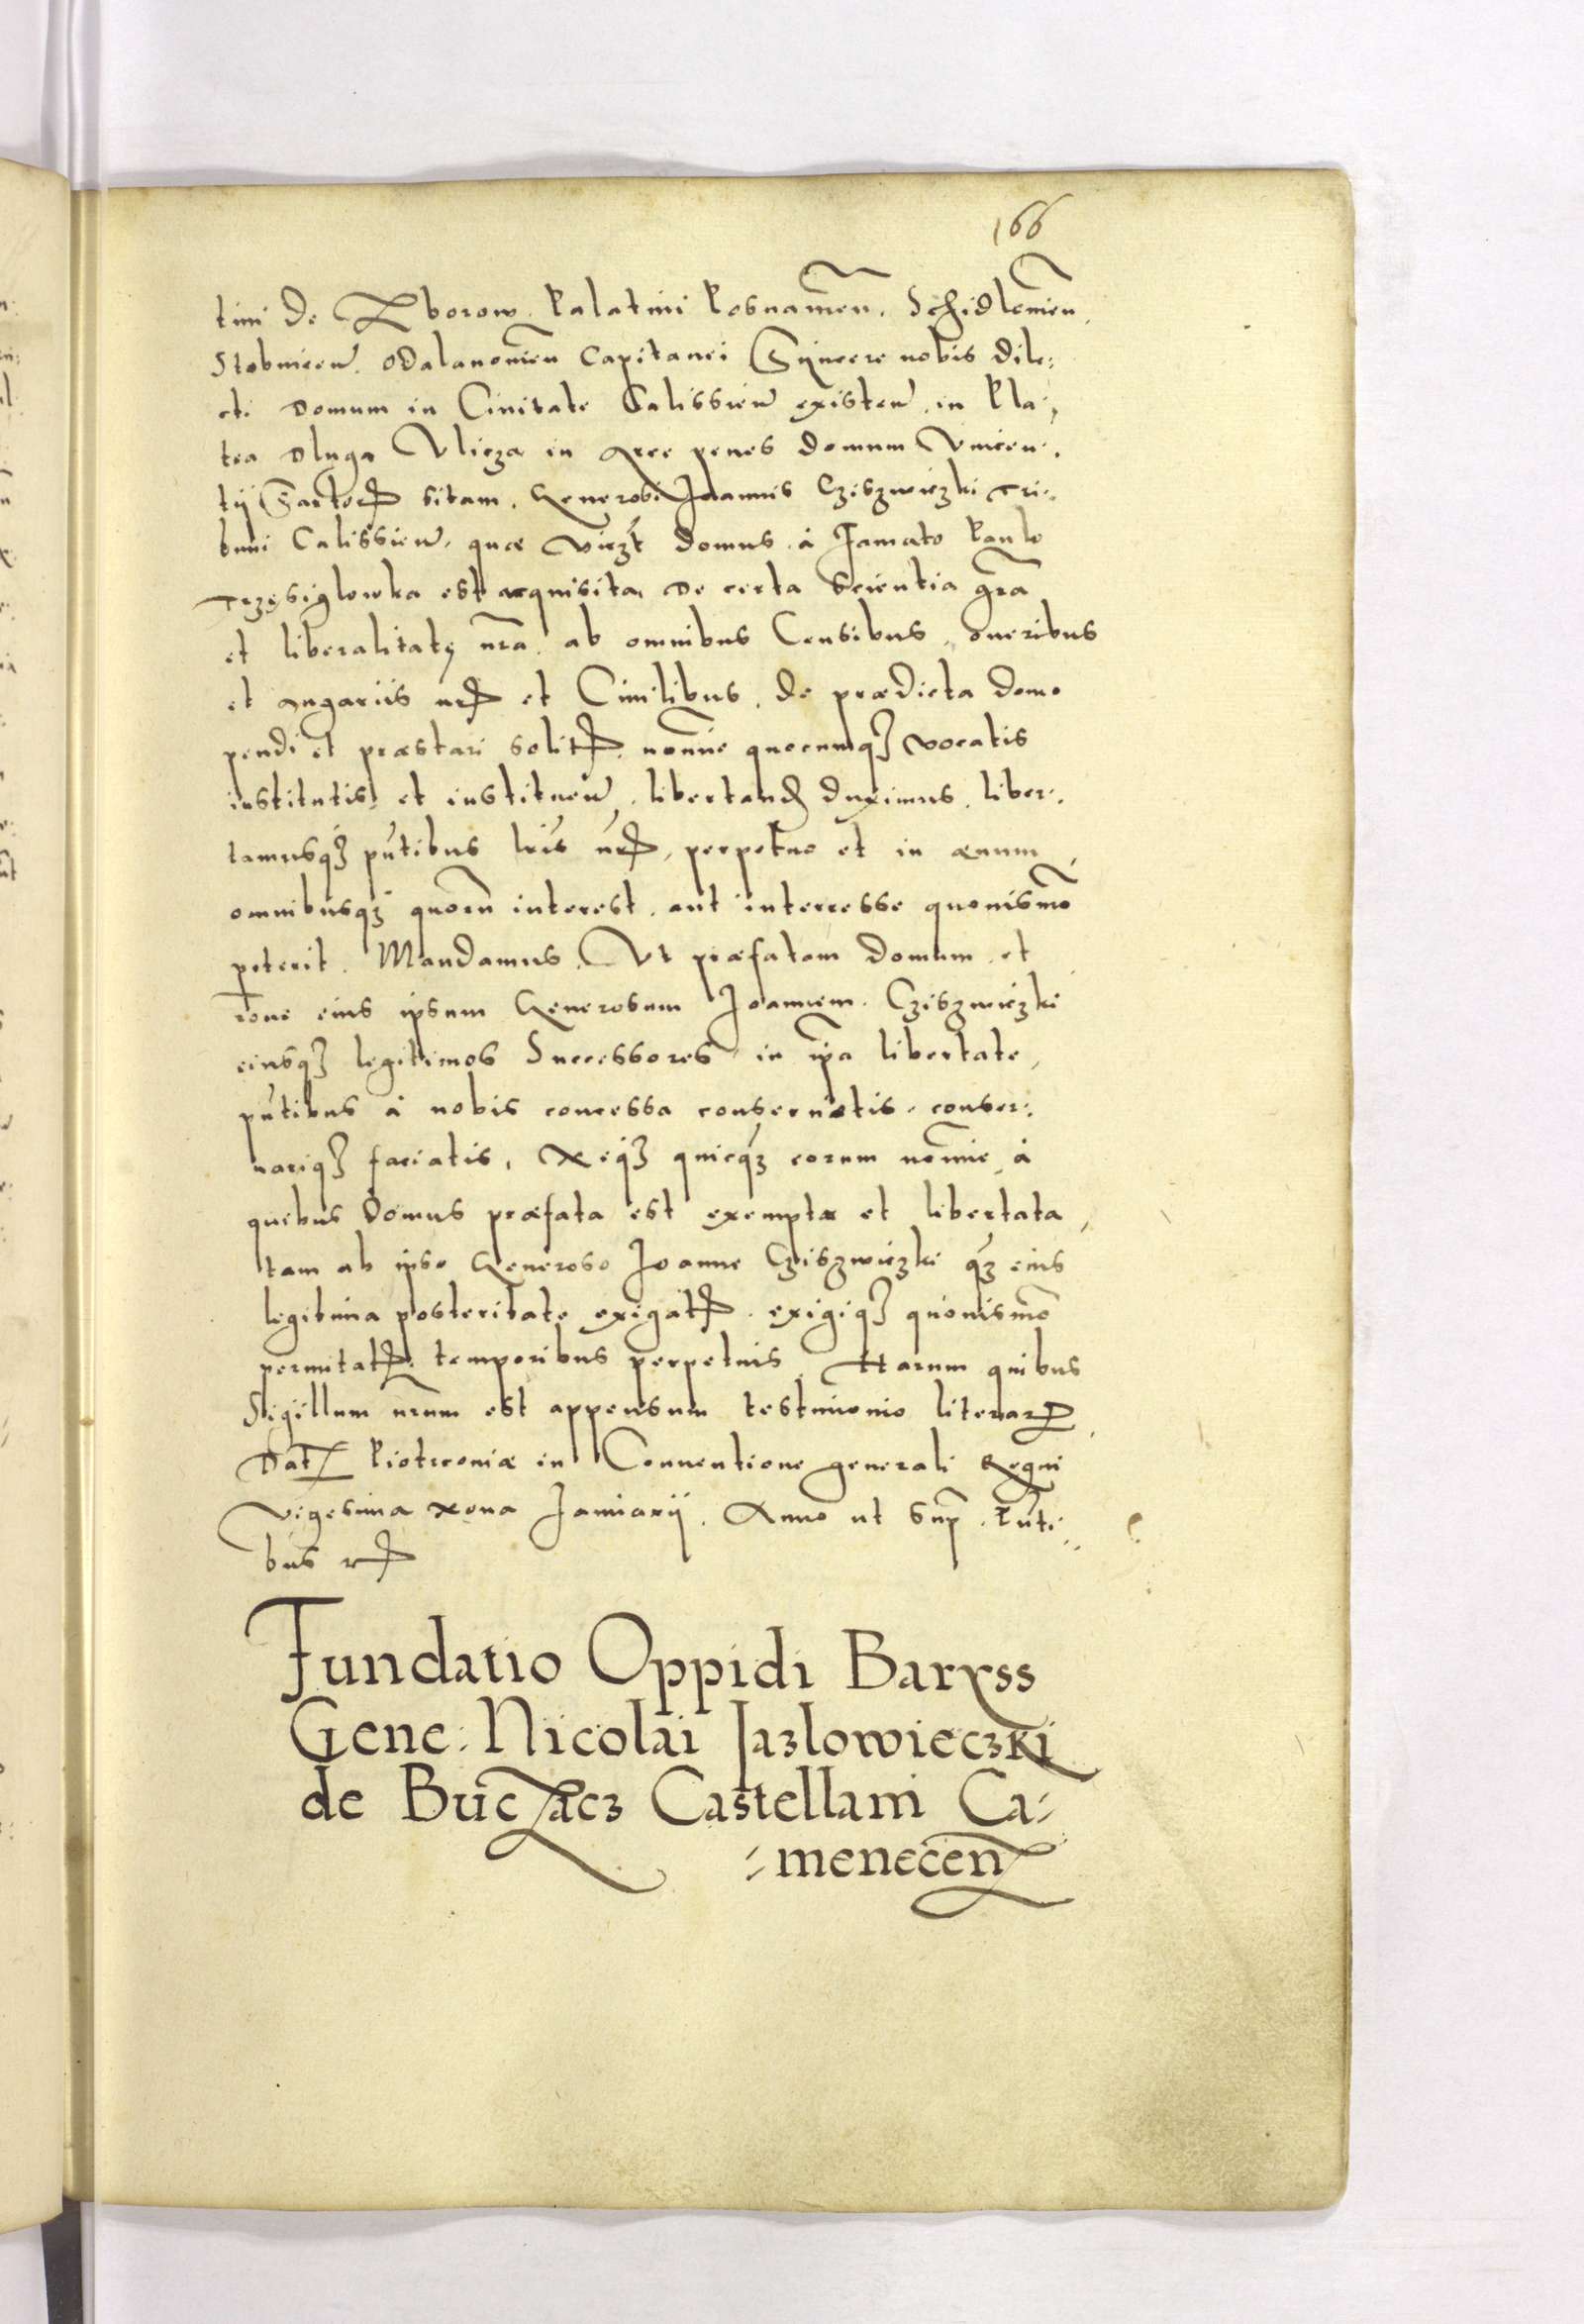 166
tini de Zborow Palatini Posnanien. Schidlovien.
Stobnicen. Odalanovien Capitanei Syncere nobis dile:
cti domum in Civitate Calissien existen. in Pla:
tea Dluga Vlicza in arce penes domum Vincen:
tij Sartoris sitam. Generosi Joannis Cziszwiczki Tri:
buni Calissien. quae domus à famato Paulo
est acquisita, de certa scientia gra
et liberalitate nra. ab omnibus Censibus, oneribus
et angariis nris et Civilibus, de praedicta domo
pendi et praestari solitis nomine quocumq3 vocatis
institutis, et instituen. libertand duximus. liber:
tamusq3 pntibus lris nris, perpetuo et in aevum,
omnibusq3 quoru interest. aut interresse quovismo
poterit. Mandamus, Vt praefatam domum et
rone eius ipsum Generosum Joannem Cziszwiczki
eiusq3 legitimos Successores in ipa libertate,
pntibus à nobis concessa conservetis. conser:
variq3 faciatis, Neq3 quicq3 eorum nomine, à
quibus domus praefata est exempta et libertata,
tam ab ipso Generoso Joanne Cziszwiczki q3 eius
legitima posteritate exigatis. exigiq3 quovismo
permitatis temporibus perpetuis. Harum quibus
Sigillum nrum est appensum testimonio literarum
Dat Piotrconiae in Conventione generali Regni
vigesima nona Januarij. Anno ut sup. Pnti:
bus
Fundatio Oppidi Baryss
Gene: Nicolai Jazlowieczki
de Buczacz Castellani Ca:
menecen